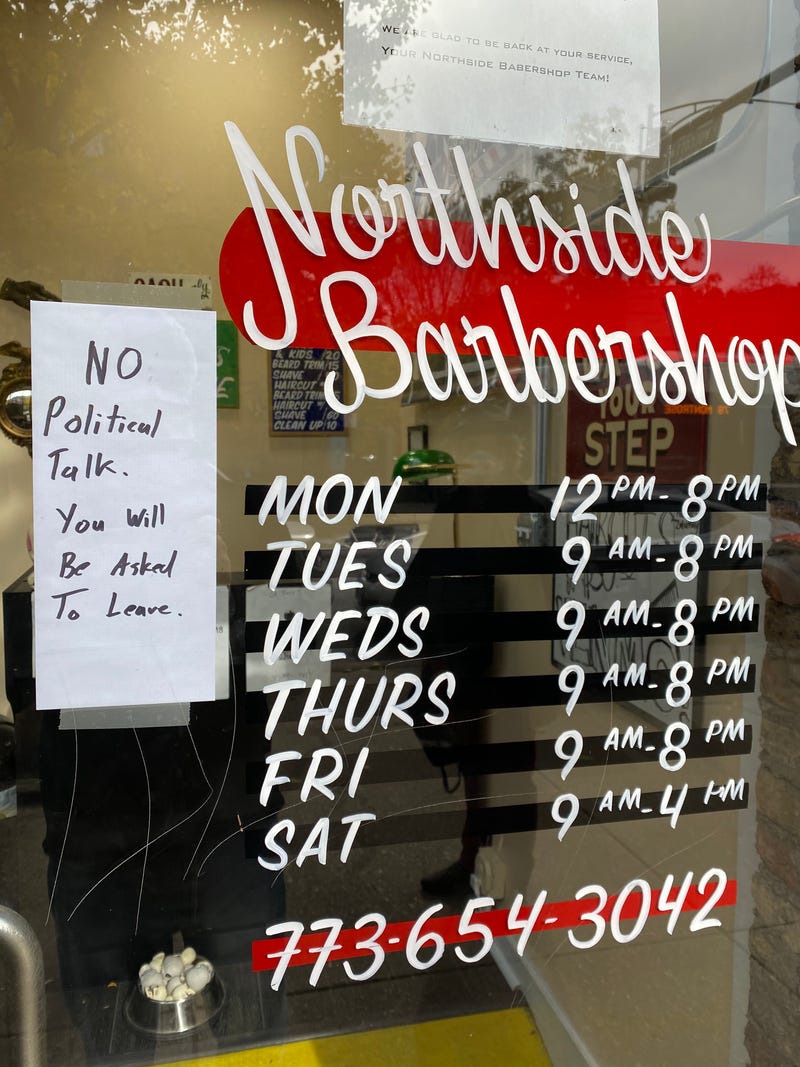 WE ARE GLAD TO BE BACK AT YOUR SERVICE,
YOUR NORTHSIDE BABERSHOP TEAM!
Northside
Barbershop
NO
Political
Talk.
You Will
Be Asked
To Leave.
CASH only
& KIDS /20
BEARD TRIM/15
SHAVE
HAIRCUT
BEARD TRIM
HAIRCUT
SHAVE /60
CLEAN UP/10
YOUR
STEP
MON 12 PM-8 PM
TUES 9 AM-8 PM
WEDS 9 AM-8 PM
THURS 9 AM-8 PM
FRI 9 AM-8 PM
SAT 9 AM-4 PM
773-654-3042